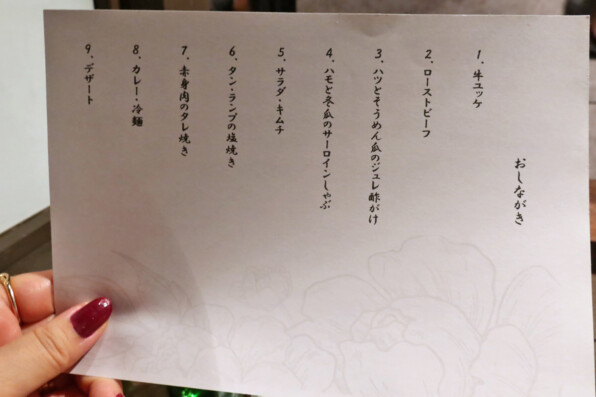 おしながき
1、牛ユッケ
2、ローストビーフ
3、ハツとそうめん瓜のジュレ酢がけ
4、ハモと冬瓜のサーロインしゃぶ
5、サラダ・キムチ
6、タン・ランプの塩焼き
7、赤身肉のタレ焼き
8、カレー・冷麺
9、デザート